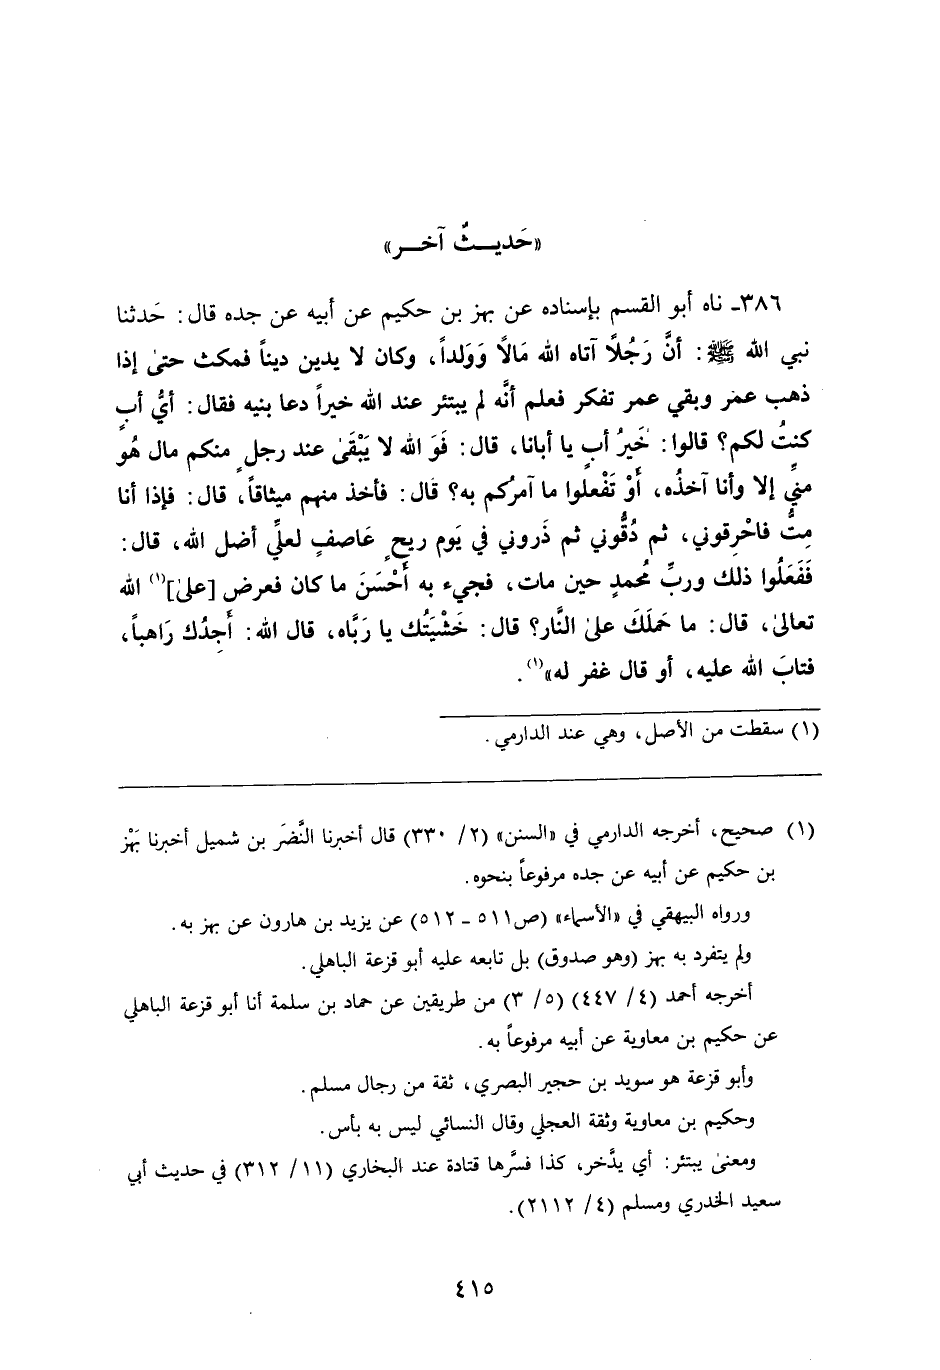 «حَديــثٌ آخــر»
٣٨٦ـ ناه أبو القسم بإسناده عن بهز بن حكيم عن أبيه عن جده قال: حَدثنا
نبي الله ﷺ: أنَّ رَجُلًا آتاه الله مَالًا وَوَلداً، وكان لا يدين ديناً فمكث حتىٰ إذا
ذهب عمَر وبقي عمر تفكر فعلم أنَّه لم يبتئر عند الله خيراً دعا بنيه فقال: أيُّ أبٍ
كنتُ لكم؟ قالوا: خَيرُ أبٍ يا أبانا، قال: فَوَ الله لا يَبْقَىٰ عند رجلٍ منكم مال هُوَ
منيِّ إلا وأنا آخذُه، أَوْ تَفْعلوا ما آمرُكم به؟ قَال: فأخذ منهم ميثاقاً، قال: فإذا أنا
مِتُّ فاحْرِقوني، ثم دُقُّوني ثم ذَروني في يَوم ريحٍ عَاصفٍ لعلِّي أضل الله، قال:
فَفَعَلُوا ذلك وربِّ مُحمدٍ حين مات، فجيء به أَحْسَنَ ما كان فعرض [علىٰ](١) الله
تعالىٰ، قال: ما حَملَكَ علىٰ النَّار؟ قال: خَشْيَتُك يا رَبَّاه، قال الله: أَجِدُك رَاهباً،
فتابَ الله عليه، أو قال غفر له»(١).
(١) سقطت من الأصل، وهي عند الدارمي.
(١) صحيح، أخرجه الدارمي في «السنن» (٢/ ٣٣٠) قال أخبرنا النَّضَر بن شميل أخبرنا بَهْز
بن حكيم عن أبيه عن جده مرفوعاً بنحوه.
ورواه البيهقي في «الأسماء» (ص٥١١ ـ ٥١٢) عن يزيد بن هارون عن بهز به.
ولم يتفرد به بهز (وهو صدوق) بل تابعه عليه أبو قزعة الباهلي.
أخرجه أحمد (٤/ ٤٤٧) (٥/ ٣) من طريقين عن حماد بن سلمة أنا أبو قزعة الباهلي
عن حكيم بن معاوية عن أبيه مرفوعاً به.
وأبو قزعة هو سويد بن حجير البصري، ثقة من رجال مسلم.
وحكيم بن معاوية وثقة العجلي وقال النسائي ليس به بأس.
ومعنىٰ يبتئر: أي يدَّخر، كذا فسَّرها قتادة عند البخاري (١١/ ٣١٢) في حديث أبي
سعيد الخدري ومسلم (٤/ ٢١١٢).
٤١٥